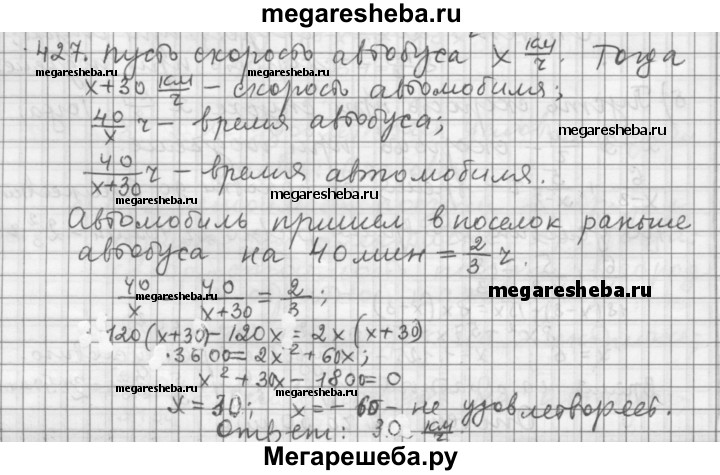 megaresheba.ru
427. Пусть скорость автобуса x км/ч. Тогда
megaresheba.ru
megaresheba.ru
x+30 км/ч – скорость автомобиля;
40/x ч – время автобуса;
megaresheba.ru
40/(x+30) ч – время автомобиля.
megaresheba.ru
megaresheba.ru
Автомобиль пришел в поселок раньше
автобуса на 40 мин = 2/3 ч.
40/x - 40/(x+30) = 2/3;
megaresheba.ru
megaresheba.ru
120(x+30) – 120x = 2x(x+30)
3600 = 2x² + 60x;
x² + 30x – 1800 = 0
megaresheba.ru
megaresheba.ru
x = 30; x = – 60 – не удовлетворяет.
Ответ: 30 км/ч.
Мегарешеба.ру